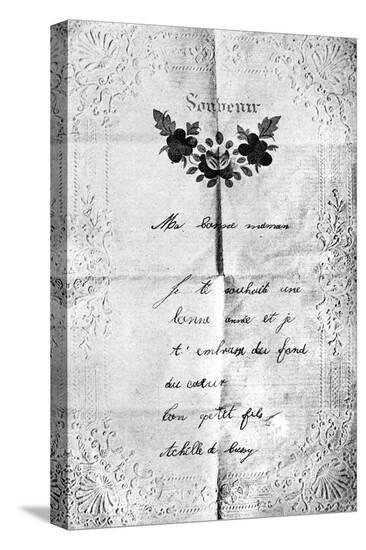 Souvenir
Ma bonne maman
Je te souhaite une
bonne année et je
t'embrasse du fond
du cœur
ton petit fils
Achille de Bussy